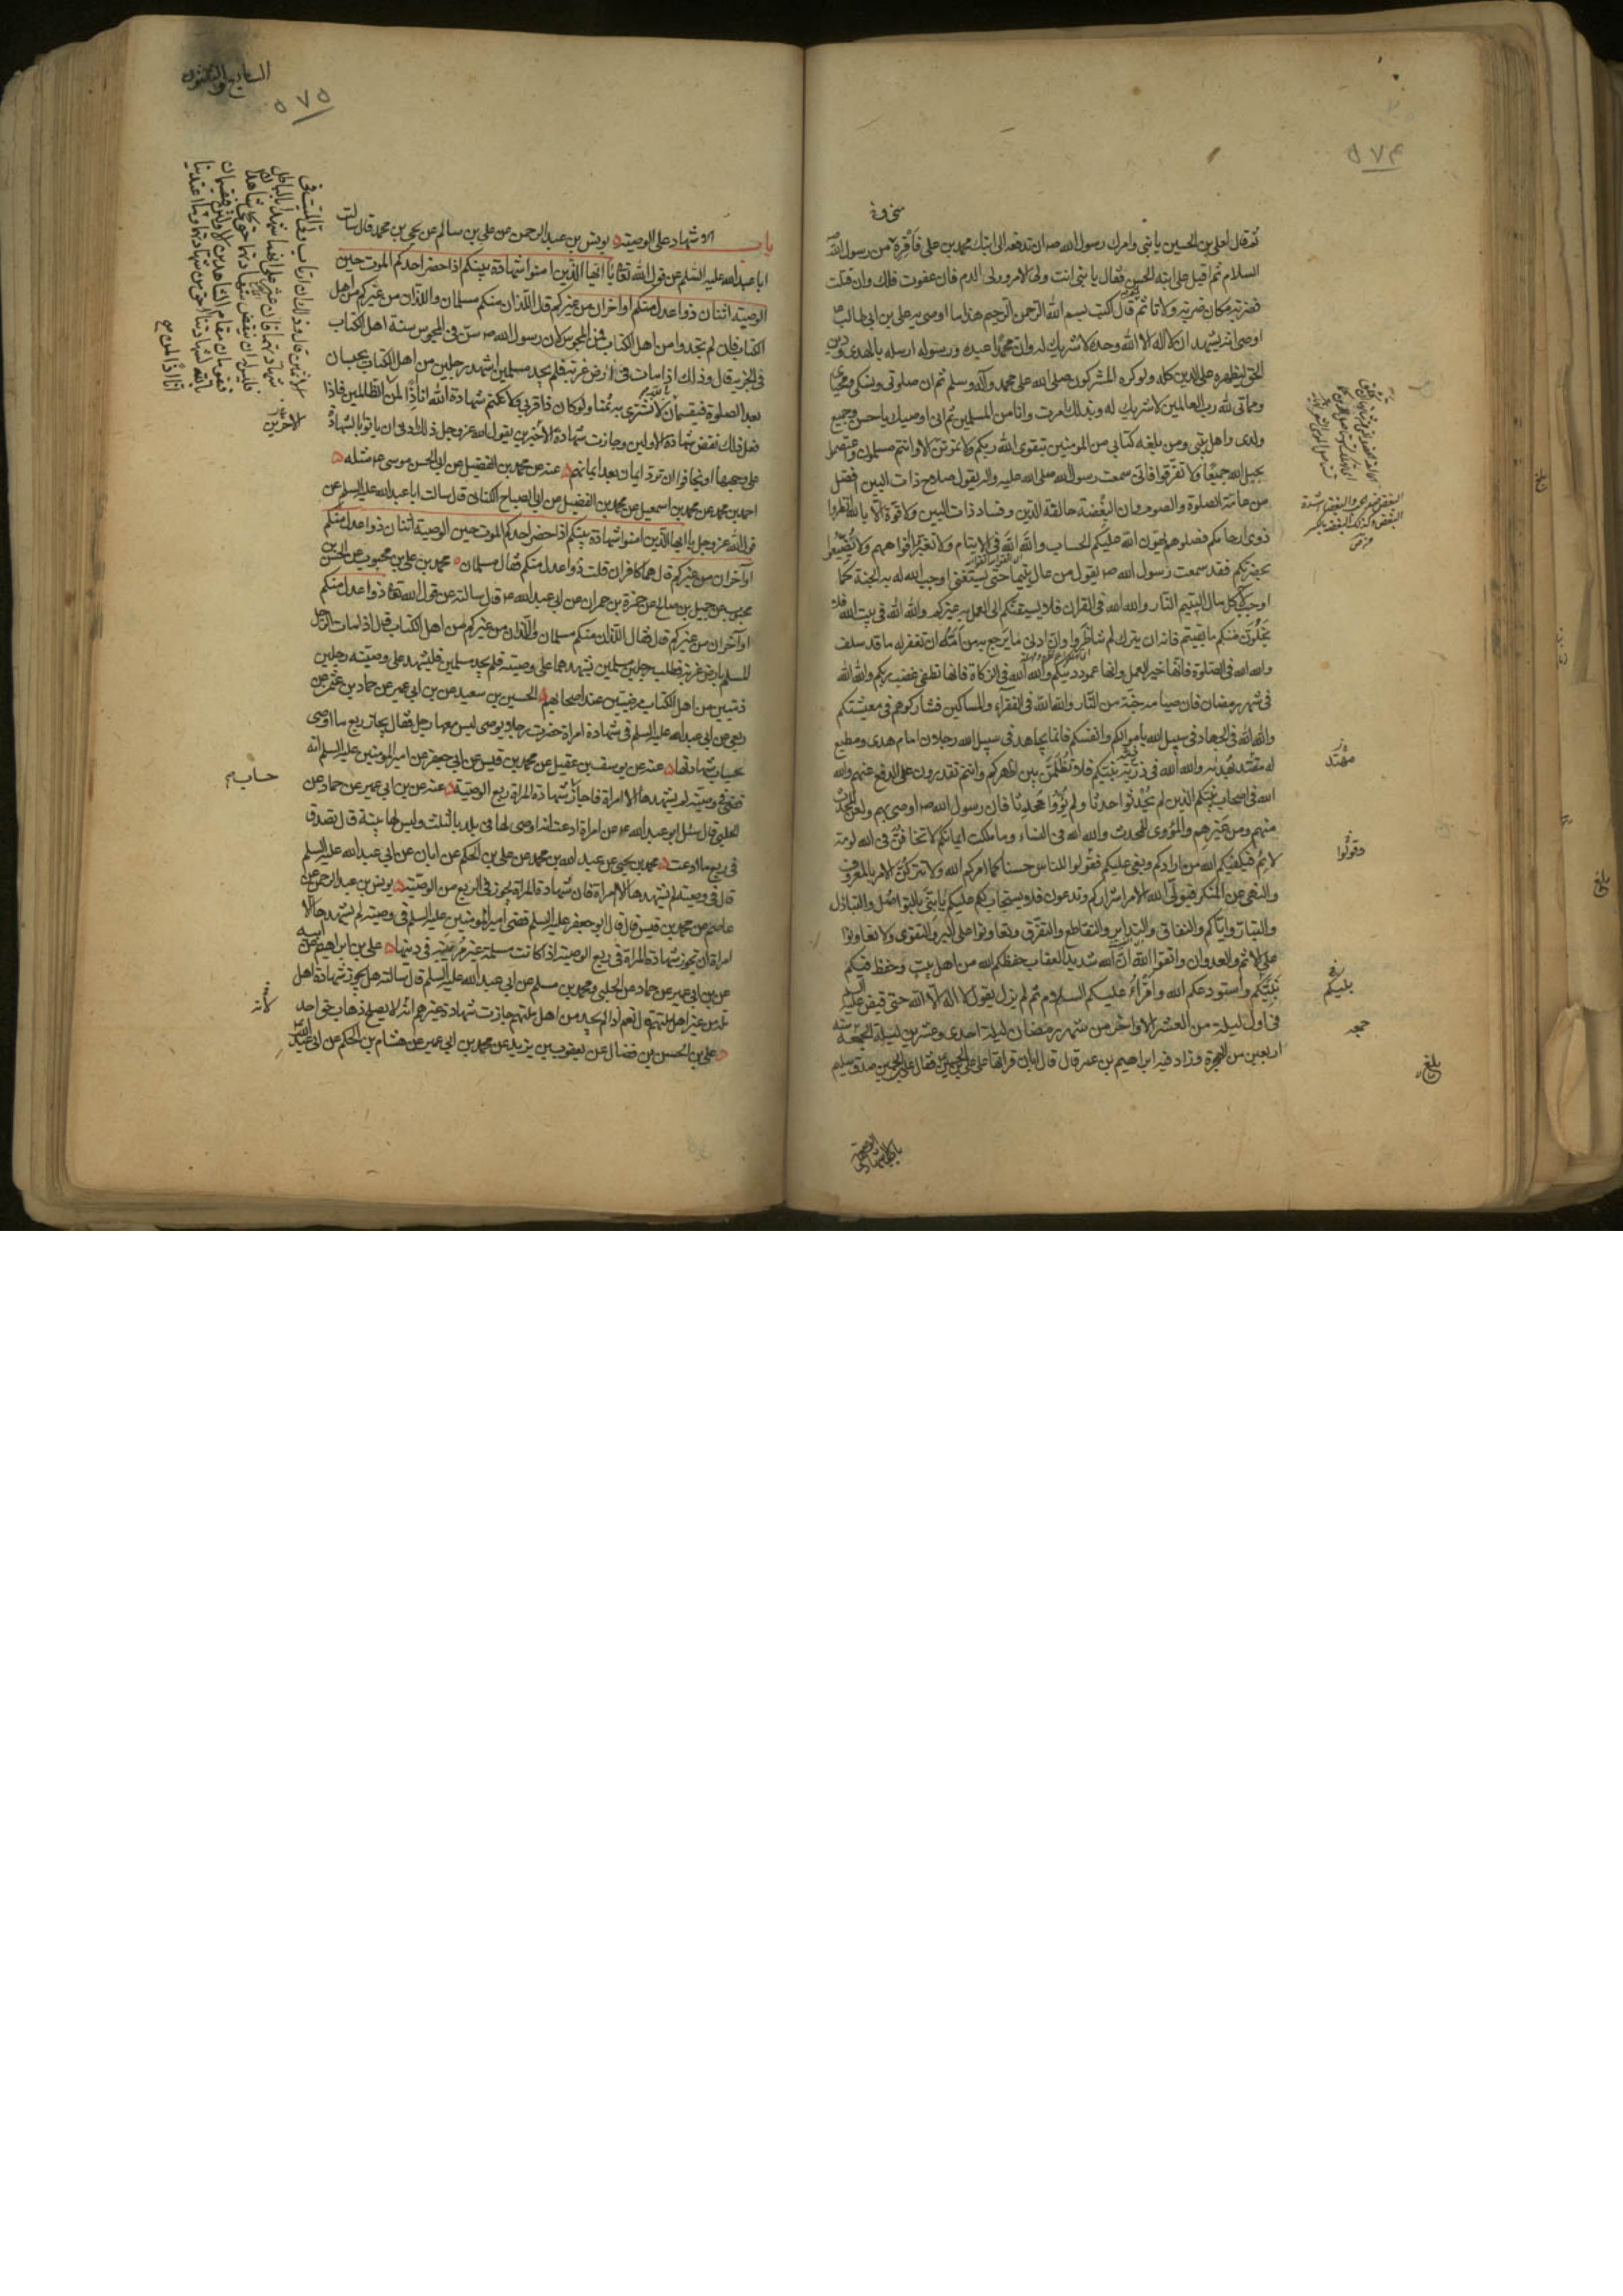 ٥٧٤
ثم قال لعلي بن الحسين يا بني وامرك رسول الله ص ان تدفعه الى ابنك محمد بن علي فاقرئه من رسول الله
السلام ثم اقبل على ابنه الحسن فقال يا بني انت ولي الامر وولي الدم فان عفوت فلك وان قتلت
فضربة مكان ضربة ولا تاثم ثم قال اكتب بسم الله الرحمن الرحيم هذا ما اوصى به علي بن ابي طالب
اوصى انه يشهد ان لا اله الا الله وحده لا شريك له وان محمدا عبده ورسوله ارسله بالهدى ودين
الحق ليظهره على الدين كله ولو كره المشركون صلى الله على محمد وآله وسلم ثم ان صلوتي ونسكي ومحياي
ومماتي لله رب العالمين لا شريك له وبذلك امرت وانا من المسلمين ثم اني اوصيك يا حسن وجميع
ولدي واهل بيتي ومن بلغه كتابي من المومنين بتقوى الله ربكم ولا تموتن الا وانتم مسلمون واعتصموا
بحبل الله جميعا ولا تفرقوا فاني سمعت رسول الله صلى الله عليه واله يقول صلاح ذات البين افضل
من عامة الصلوة والصوم وان البغضة حالقة الدين وفساد ذات البين ولا قوة الا بالله انظروا
ذوي ارحامكم فصلوهم يهون الله عليكم الحساب والله الله في الايتام ولا تغير افواههم ولا يضيعوا
بحضرتكم فقد سمعت رسول الله ص يقول من عال يتيما حتى يستغني اوجب الله له به الجنة كما
اوجب لآكل مال اليتيم النار والله الله في القران فلا يسبقنكم الى العمل به غيركم والله الله في بيت الله فلا
يخلون منكم ما بقيتم فانه ان يترك لم تناظروا وان ادنى ما يرجع به من امه ان تغفر له ما قد سلف
والله الله في الصلوة فانها خير العمل وانها عمود دينكم والله الله في الزكاة فانها تطفئ غضب ربكم والله الله
في شهر رمضان فان صيامه جنة من النار والله الله في الفقراء والمساكين فشاركوهم في معيشتكم
والله الله في الجهاد في سبيل الله باموالكم وانفسكم فانما يجاهد في سبيل الله رجلان امام هدى ومطيع
له مقتد بهداه والله الله في ذرية نبيكم فلا تظلمن بين اظهركم وانتم تقدرون على الدفع عنهم والله
الله في اصحاب نبيكم الذين لم يحدثوا حدثا ولم يؤووا محدثا فان رسول الله ص اوصى بهم ولعن المحدث
منهم ومن غيرهم والمؤوي للمحدث والله الله في النساء وما ملكت ايمانكم لا تخافن في الله لومة
لائم فيكفيكم الله من ارادكم وبغى عليكم فقولوا للناس حسنا كما امركم الله ولا تتركن الامر بالمعروف
والنهي عن المنكر فيولي الله الامر اشراركم وتدعون فلا يستجاب لكم عليكم يا بني بالتواصل والتباذل
والتبار واياكم والنفاق والتدابر والتقاطع والتفرق وتعاونوا على البر والتقوى ولا تعاونوا
على الاثم والعدوان واتقوا الله ان الله شديد العقاب حفظكم الله من اهل بيت وحفظ فيكم
نبيكم واستودعكم الله واقراء عليكم السلام ثم لم يزل يقول لا اله الا الله حتى قبض عليه السلم
في اول ليلة من العشر الاواخر من شهر رمضان ليلة احدى وعشرين ليلة الجمعة سنة
اربعين من الهجرة وزاد فيه ابراهيم بن عمر قال قال ابان قراتها على علي بن الحسين فقال علي بن الحسين صدق سليم
وقولوا
جمعه
بلغ
٥٧٥
السابع والثلثون
باب الاشهاد على الوصية يونس بن عبد الرحمن عن علي بن سالم عن يحيى بن محمد قال سالت
ابا عبد الله عليه السلم عن قول الله تعا يا ايها الذين امنوا شهادة بينكم اذا حضر احدكم الموت حين
الوصية اثنان ذوا عدل منكم او اخران من غيركم قال اللذان منكم مسلمان واللذان من غيركم من اهل
الكتاب فان لم تجدوا من اهل الكتاب فمن المجوس لان رسول الله ص سن في المجوس سنة اهل الكتاب
في الجزية قال وذلك اذا مات في ارض غربة فلم يجد مسلمين اشهد رجلين من اهل الكتاب يحبسان
بعد الصلوة فيقسمان بالله لا نشتري به ثمنا ولو كان ذا قربى ولا نكتم شهادة الله انا اذا لمن الظالمين فاذا
فعل ذلك نقض شهادة الاولين وجازت شهادة الاخرين يقول الله عز وجل ذلك ادنى ان ياتوا بالشهادة
على وجهها او يخافوا ان ترد ايمان بعد ايمانهم عنه عن محمد بن الفضيل عن ابي الحسن موسى ع مثله
احمد بن محمد عن محمد بن اسمعيل عن محمد بن الفضيل عن ابي الصباح الكناني قال سالت ابا عبد الله عليه السلم عن
قول الله عز وجل يا ايها الذين امنوا شهادة بينكم اذا حضر احدكم الموت حين الوصية اثنان ذوا عدل منكم
او آخران من غيركم قال هما كافران قلت ذوا عدل منكم فقال مسلمان محمد بن علي بن محبوب عن الحسن بن
محبوب عن جميل بن صالح عن حمزة بن حمران عن ابي عبد الله ع قال سالته عن قول الله تعا ذوا عدل منكم
او آخران من غيركم قال فقال اللذان منكم مسلمان واللذان من غيركم من اهل الكتاب قال اذا مات الرجل
المسلم بارض غربة فطلب رجلين مسلمين يشهدهما على وصيته فلم يجد مسلمين فليشهد على وصيته رجلين
ذميين من اهل الكتاب مرضيين عند اصحابهم الحسين بن سعيد عن بن ابي عمير عن حماد بن عثمن عن
ربعي عن ابي عبد الله عليه السلم في شهادة امراة حضرت رجلا يوصي ليس معها رجل فقال يجاز ربع ما اوصى
بحساب شهادتها عنه عن يوسف بن عقيل عن محمد بن قيس عن ابي جعفر عن امير المومنين عليه السلم انه
قضى في وصية لم يشهدها الا امراة فاجاز شهادة المراة ربع الوصية عنه عن بن ابي عمير عن حماد عن
الحلبي قال سئل ابو عبد الله ع عن امراة ادعت انه اوصى لها في بلد بالثلث وليس لها بينة قال تصدق
في ربع ما ادعت محمد بن يحيى عن عبد الله بن محمد عن علي بن الحكم عن ابان عن ابي عبد الله عليه السلم
قال في وصية لم يشهدها الا امراة فان شهادة المراة تجوز في الربع من الوصية يونس بن عبد الرحمن عن
عاصم عن محمد بن قيس قال قال ابو جعفر عليه السلم قضى امير المومنين عليه السلم في وصية لم يشهدها الا
امراة ان تجوز شهادة المراة في ربع الوصية اذا كانت مسلمة غير مريبة في دينها علي بن ابراهيم عن ابيه
عن بن ابي عمير عن حماد عن الحلبي ومحمد بن مسلم عن ابي عبد الله عليه السلم قال سالته هل يجوز شهادة اهل
ملة من غير اهل ملتهم قال نعم اذا لم يجد من اهل ملتهم جازت شهادة غيرهم انه لا يصلح ذهاب حق احد
علي بن الحسن بن فضال عن يعقوب بن يزيد عن محمد بن ابي عمير عن هشام بن الحكم عن ابي عبد الله
لانه